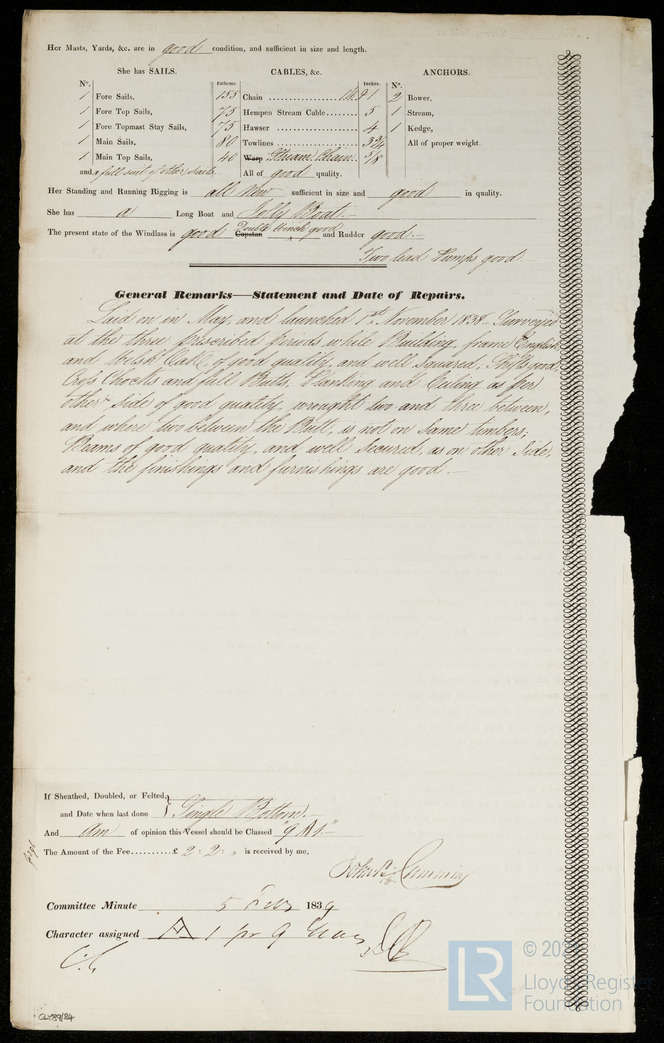 Her Masts, Yards, &c. are in good condition, and sufficient in size and length.
She has SAILS. CABLES, &c. ANCHORS.
No. Fathoms. Inches. No.
1 Fore Sails, 155 Chain 1 2 Bower,
1 Fore Top Sails, 75 Hempen Stream Cable 5 1 Stream,
1 Fore Topmast Stay Sails, 75 Hawser 4 1 Kedge,
1 Main Sails, 80 Towlines 3 3/4 All of proper weight.
1 Main Top Sails, 40 Warp Stream Chain 5/8
and a full suit of other sails. All of good quality.
Her Standing and Running Rigging is all New sufficient in size and good in quality.
She has a Long Boat and Jolly Boat.—
The present state of the Windlass is good Capstan Double Winch good and Rudder good.—
Two lead Pumps good
General Remarks—Statement and Date of Repairs.
Laid on in May, and launched 1st November 1838—Surveyed
at the three prescribed periods while Building, frame English
and Welsh Oak, of good quality, and well squared; Shifts good,
Cross Chocks and full Butts, Planking and Ceiling as per
other side of good quality, wrought two and three between,
and where two between the Butt, is not on same timbers;
Beams of good quality, and well secured, as on other side,
and the finishings and furnishings are good.—
If Sheathed, Doubled, or Felted,
and Date when last done } Single Bottom.
And am of opinion this Vessel should be Classed "9 A1"
The Amount of the Fee £ 2 : 2 : is received by me,
Committee Minute 5 Feby 1839
Character assigned A 1 for 9 Years
© 202
Lloyd's Register
Foundation
LR